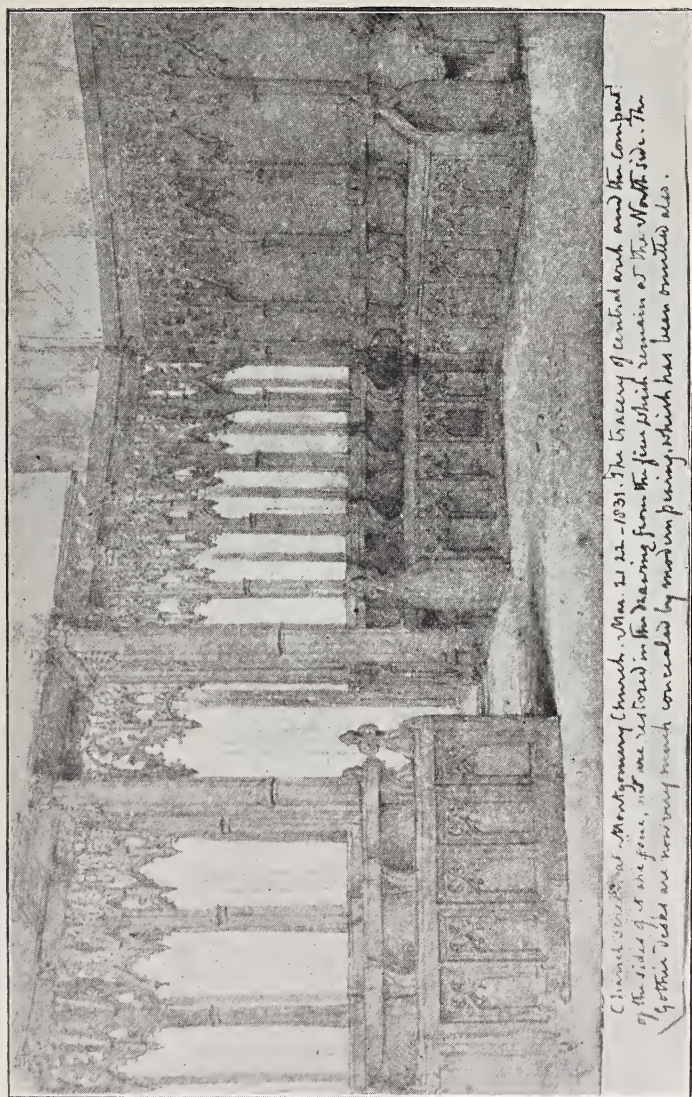 Chancel screen at Montgomery Church. Mar. 21 22 - 1831. The tracery of central arch and the compart!
of the sides of it are gone, are restored in the drawing from the few which remain at the North side. The
Gothic desks are now very much concealed by modern pewing, which has been omitted also.